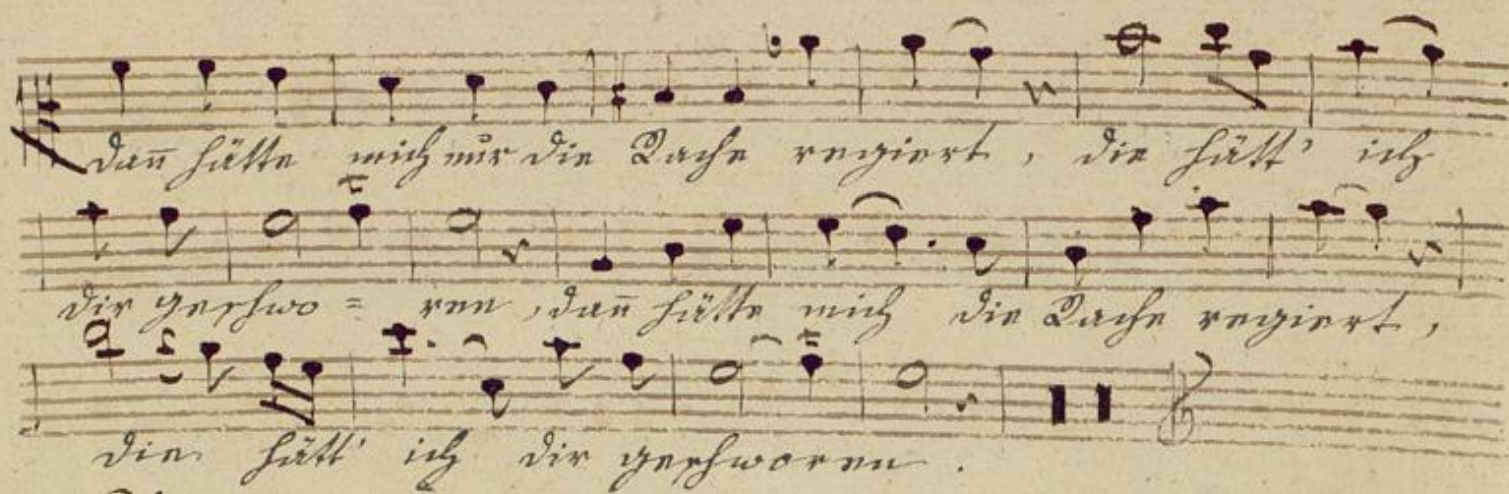 dan̄ hätte mich nur die Rache regiert, die hätt' ich
dir geschwo = ren, dan̄ hätte mich die Rache regiert,
die hätt' ich dir geschworen.